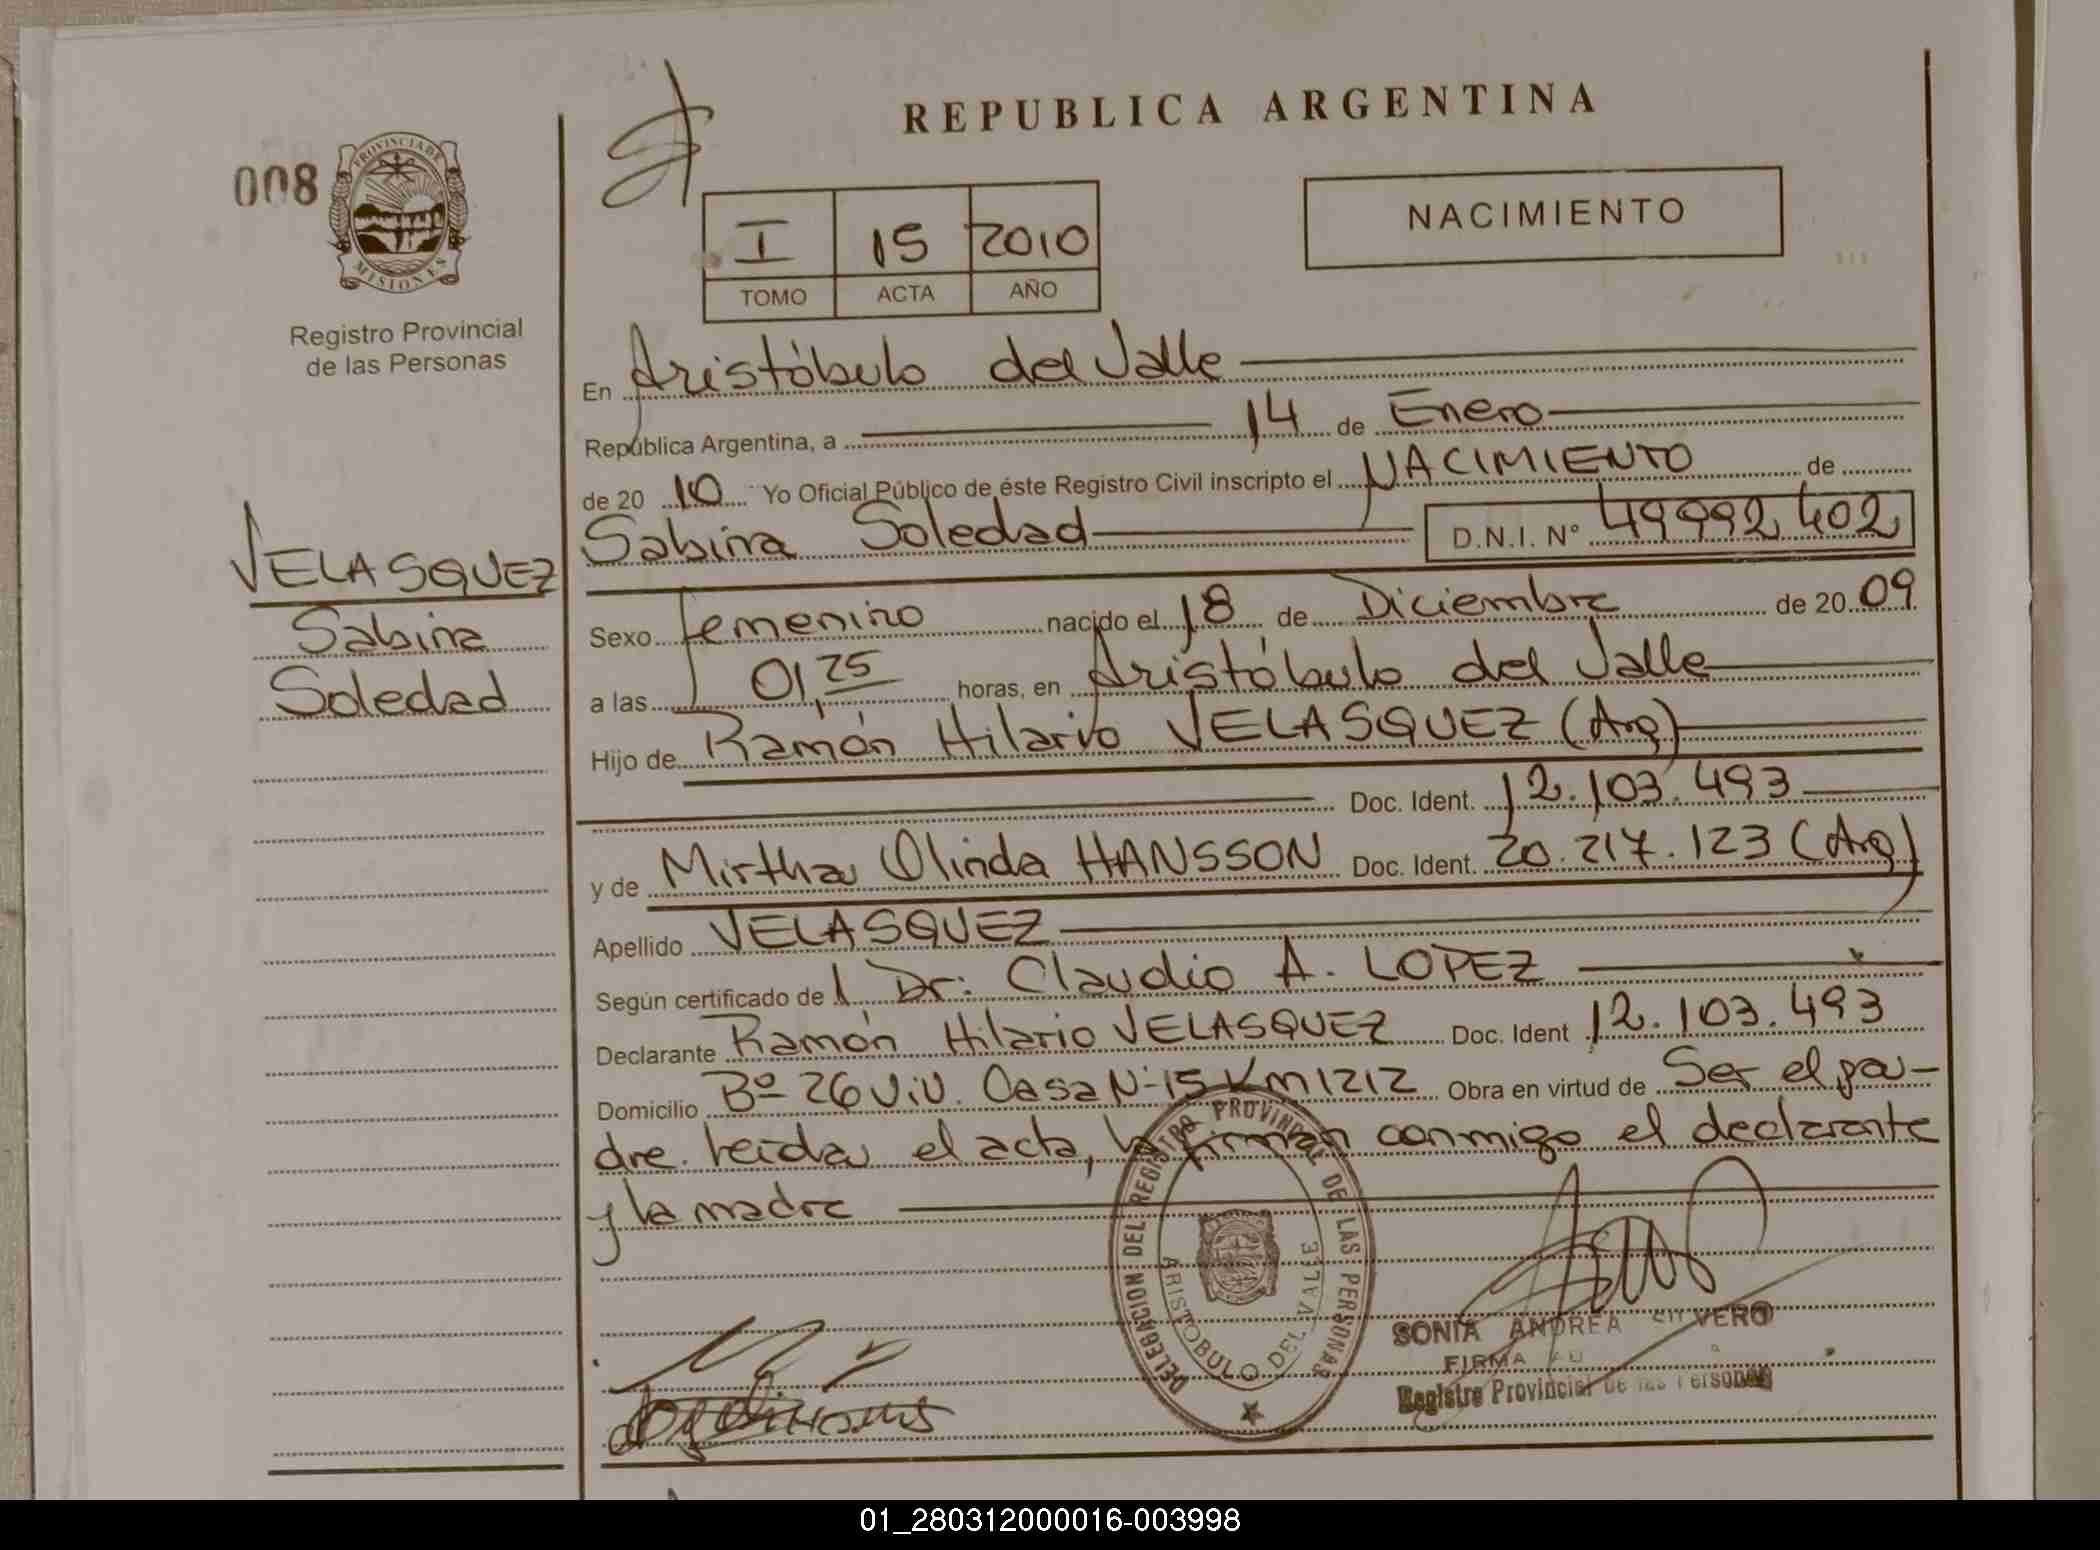 REPUBLICA ARGENTINA
008
PROVINCIA DE
MISIONES
Registro Provincial
de las Personas
I 15 2010
TOMO ACTA AÑO
NACIMIENTO
VELASQUEZ
Sabina
Soledad
En Aristóbulo del Valle
República Argentina, a 14 de Enero
de 20 10 Yo Oficial Público de éste Registro Civil inscripto el NACIMIENTO de
Sabina Soledad D.N.I. Nº 49992402
Sexo femenino nacido el 18 de Diciembre de 20 09
a las 01,25 horas, en Aristóbulo del Valle
Hijo de Ramón Hilario VELASQUEZ (Arg)
Doc. Ident. 12.103.493
y de Mirtha Olinda HANSSON Doc. Ident. 20.217.123 (Arg)
Apellido VELASQUEZ
Según certificado de Dr: Claudio A. LOPEZ
Declarante Ramón Hilario VELASQUEZ Doc. Ident 12.103.493
Domicilio Bº 26 Viv. Casa Nº15 Km1212 Obra en virtud de Ser el pa-
dre. leida el acta, la firman conmigo el declarante
y la madre
DELEGACION DEL REGISTRO PROVINCIAL DE LAS PERSONAS
ARISTOBULO DEL VALLE
SONIA ANDREA VERO
FIRMA
Registro Provincial de las Personas
01_280312000016-003998